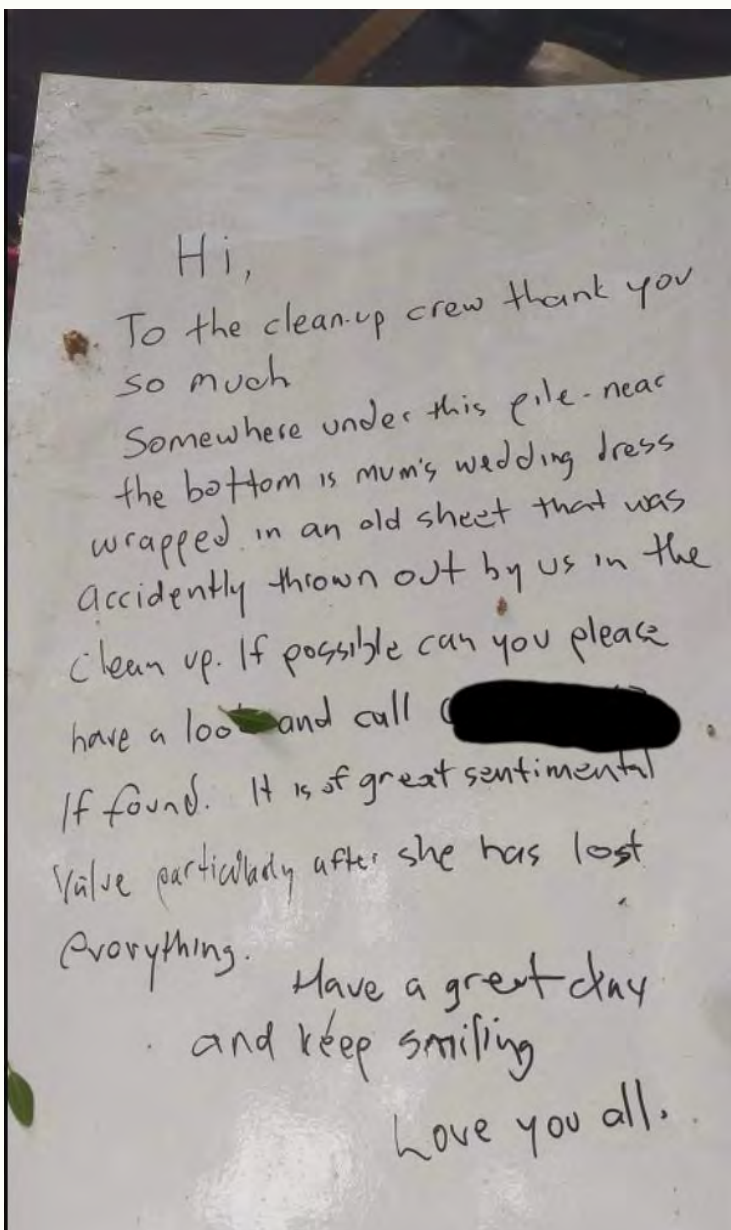 Hi,
To the clean-up crew thank you
so much
Somewhere under this pile - near
the bottom is mum's wedding dress
wrapped in an old sheet that was
accidently thrown out by us in the
clean up. If possible can you please
have a loo and call
If found. It is of great sentimental
Value particularly after she has lost
everything.
Have a great day
and keep smiling
Love you all.